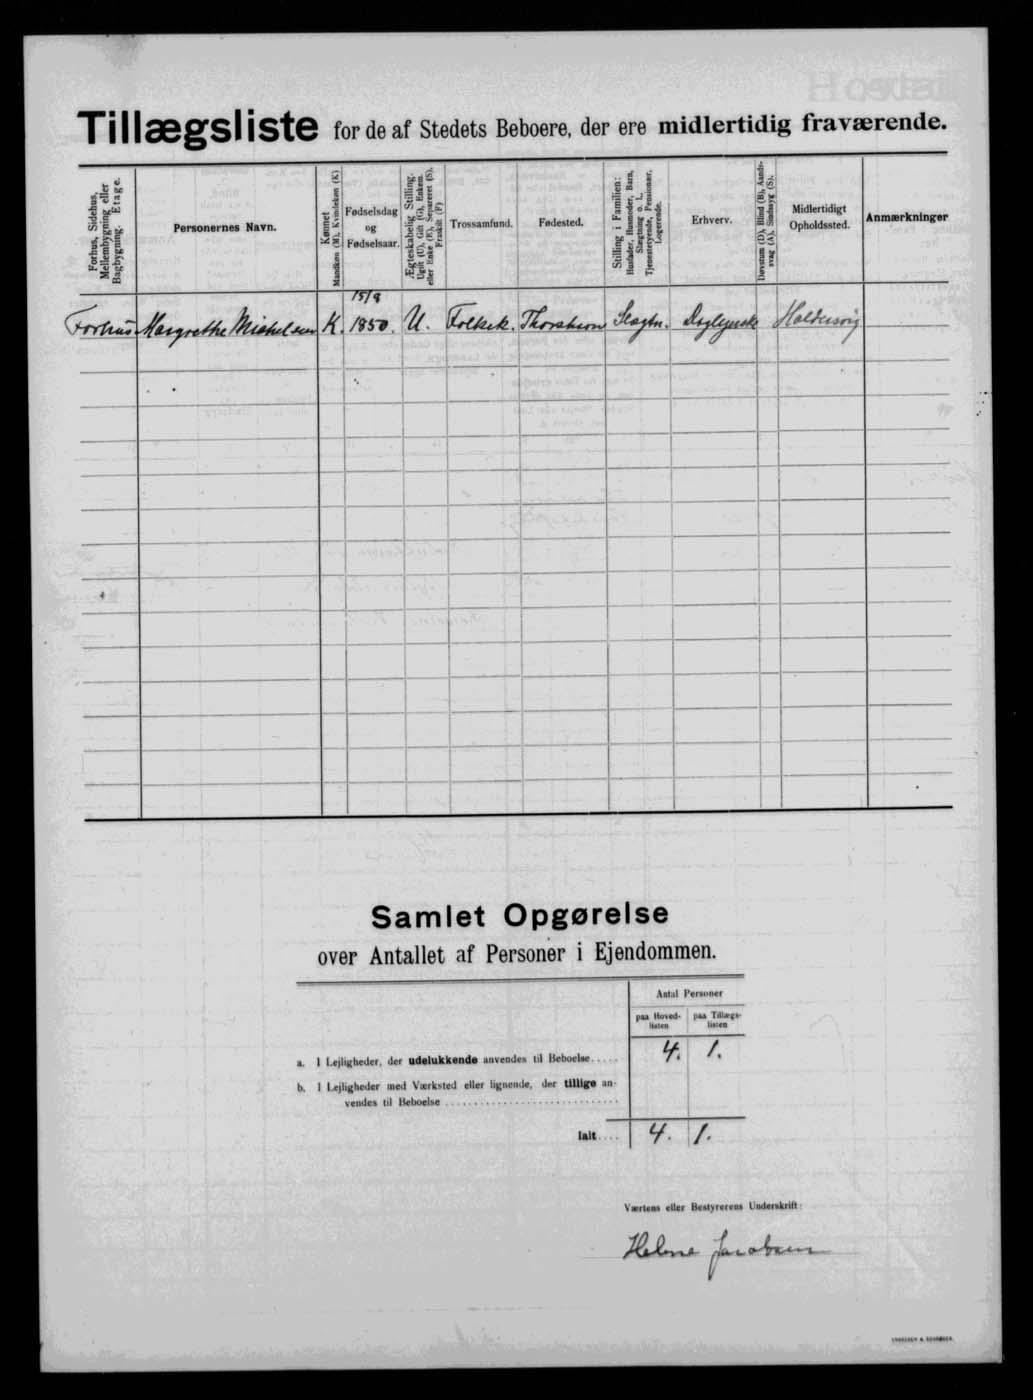 Tillægsliste for de af Stedets Beboere, der ere midlertidig fraværende.
Forhus, Sidehus, Mellembygning eller Bagbygning. Etage.
Personernes Navn.
Kønnet
Mandkøn (M), Kvindekøn (K)
Fødselsdag
og
Fødselsaar.
Ægteskabelig Stilling.
Ugift (U), Gift (G), Enkem.
eller Enke (E), Separeret (S),
Fraskilt (F)
Trossamfund.
Fødested.
Stilling i Familien:
Husfader, Husmoder, Barn,
Slægtning o. l.
Tjenestetyende, Pensionær,
Logerende.
Erhverv.
Døvstum (D), Blind (B), Aands-
svag (A), Sindssyg (S).
Midlertidigt
Opholdssted.
Anmærkninger
15/9
Forhus Margrethe Michelsen K. 1850. U. Folkek. Thorshavn Slægtn. Haldersvig
Samlet Opgørelse
over Antallet af Personer i Ejendommen.
Antal Personer
paa Hoved-
listen
paa Tillægs-
listen
a. I Lejligheder, der udelukkende anvendes til Beboelse..... 4. 1.
b. I Lejligheder med Værksted eller lignende, der tillige an-
vendes til Beboelse
Ialt.... 4. 1.
Værtens eller Bestyrerens Underskrift:
Helene Jacobsen